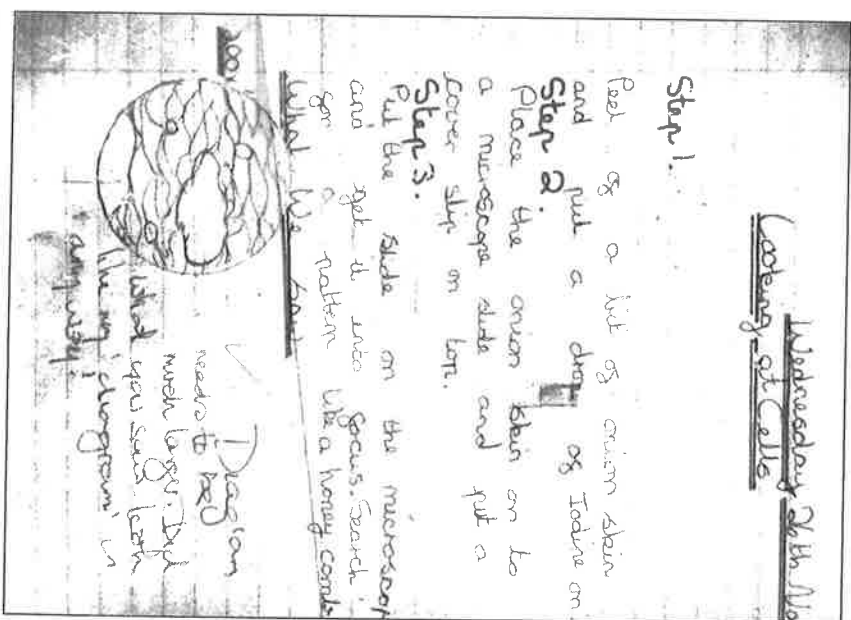 Wednesday 26th No
Looking at Cells
Step 1.
Peel of a bit of onion skin
and put a drop of Iodine on.
Step 2.
Place the onion skin on to
a microscope slide and put a
cover slip on top.
Step 3.
Put the slide on the microscop
and get it into focus. Search
for a pattern like a honey comb
What We
Diagram
needs to be
much larger. Did
what you saw look
like my diagram in
any way?